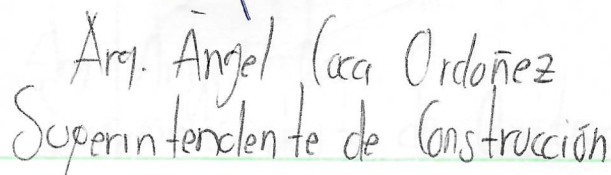 Arq. Ángel Caca Ordoñez
Superintendente de Construcción